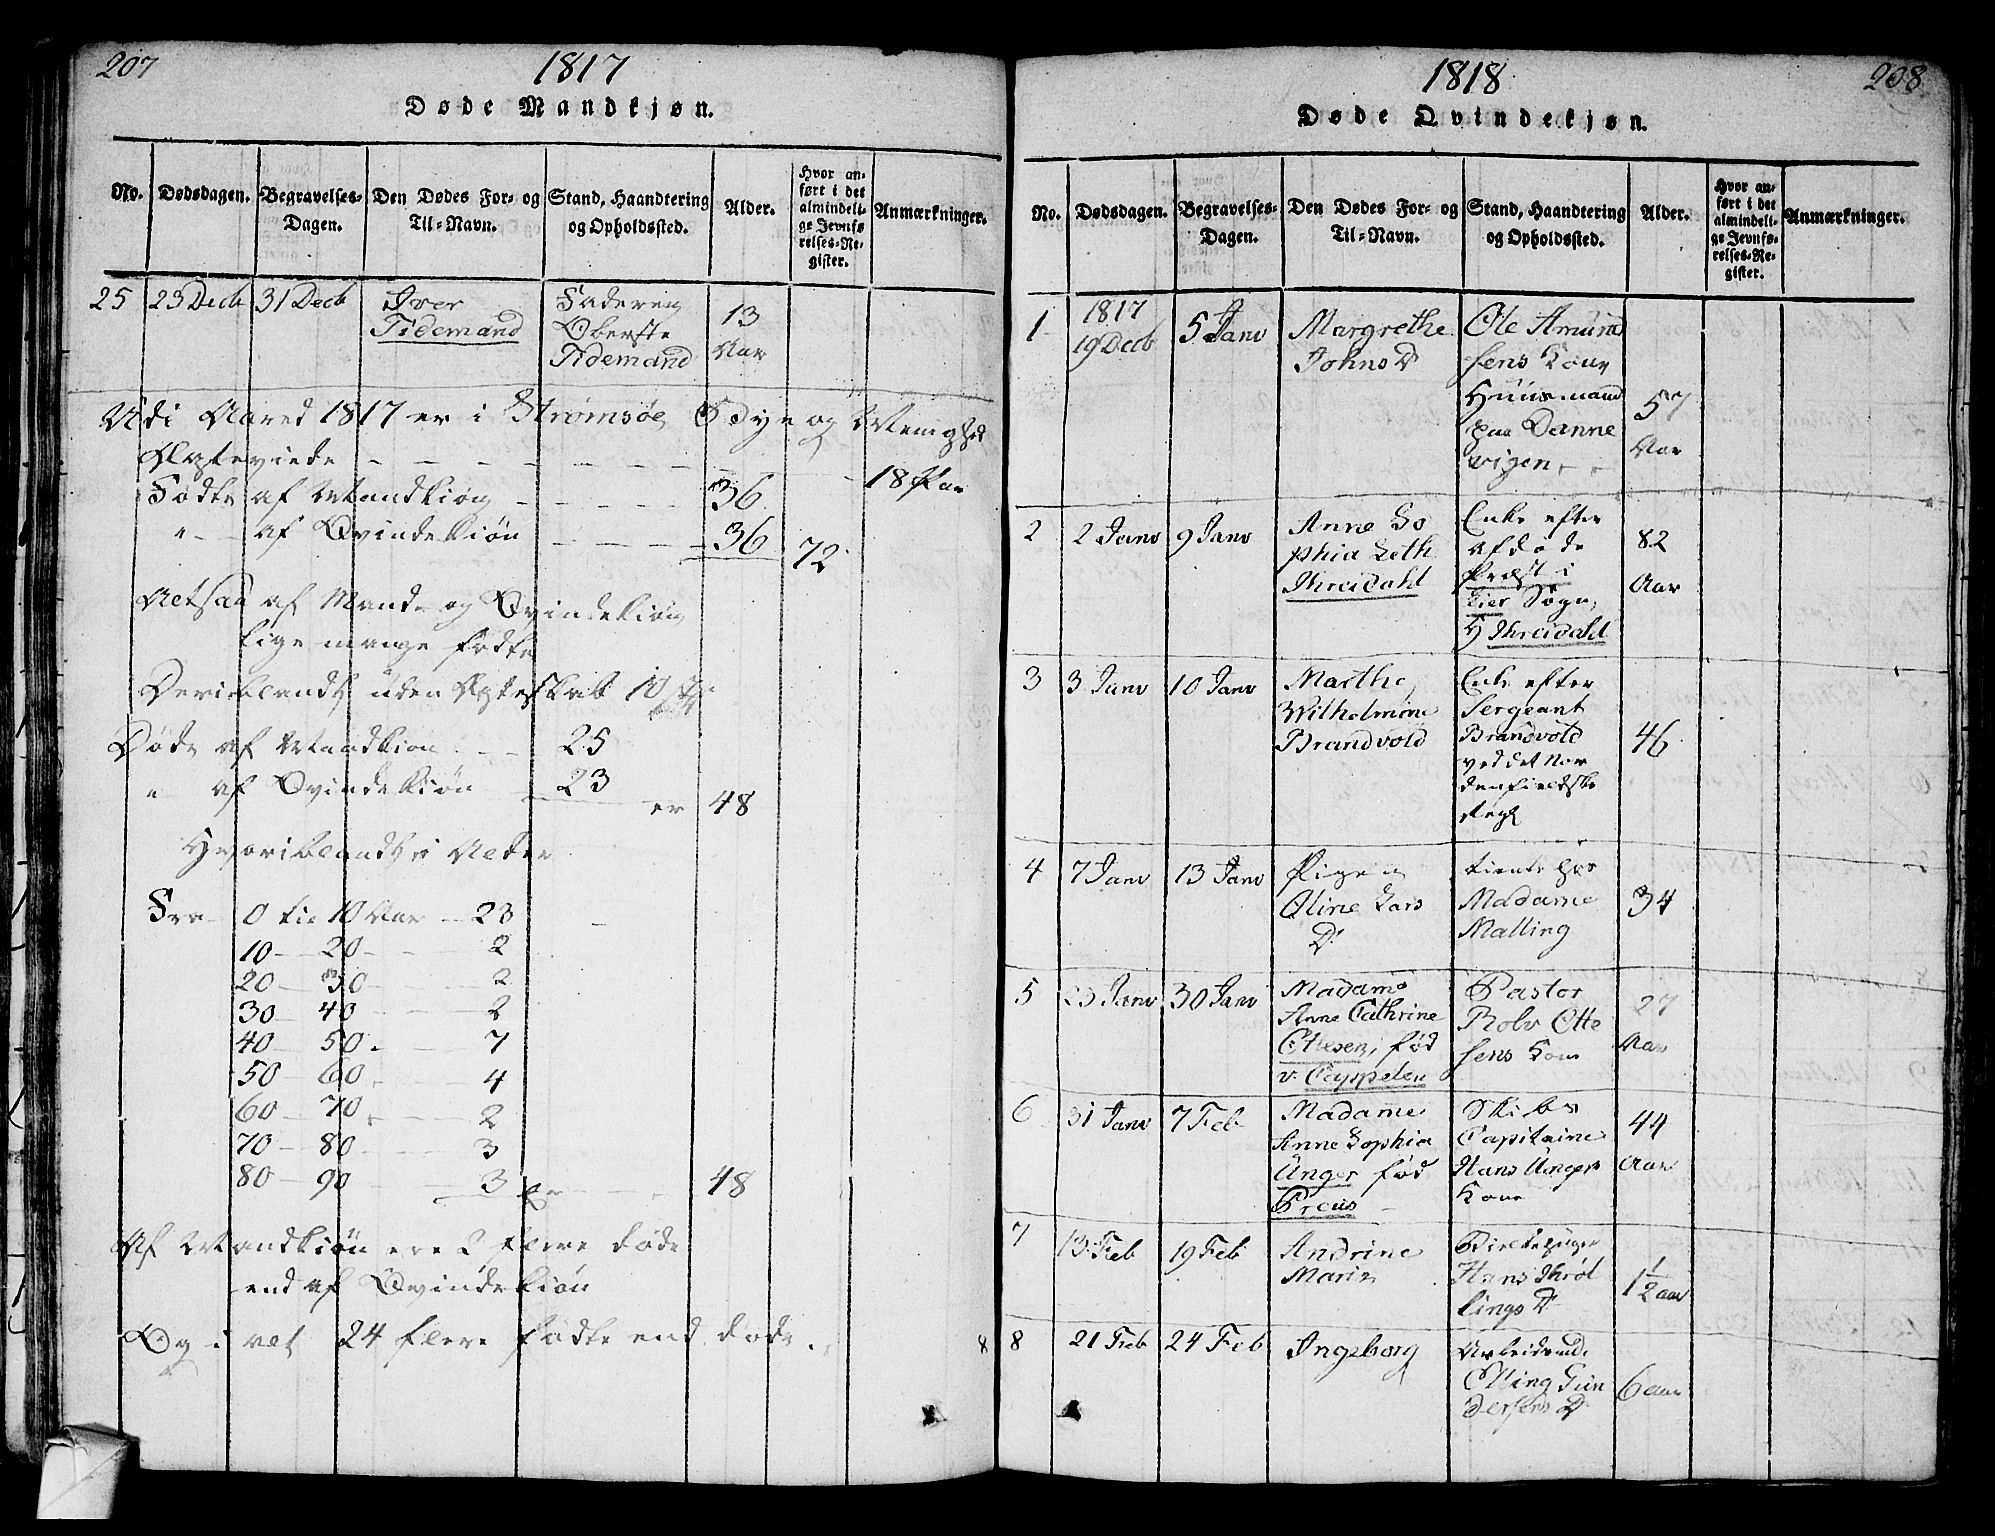 207
1817
Døde Mandkjøn.
No.
Dødsdagen.
Begravelses-
Dagen.
Den Dødes For- og
Til-Navn.
Stand, Haandtering
og Opholdssted.
Alder.
Hvor an-
ført i det
almindeli-
ge Jevnfø-
relses-Re-
gister.
Anmærkninger.
25 23 Decb 31 Decb
Iver
Tidemand
Faderen
Oberste
Tidemand
13
Aar
Udi Aaret 1817 er i Strømsøe Bye og
Ægteviede 18 Par
Fødte af Mandkiøn 36
" af Qvindekiøn 36 72
Altsaa af Mand- og Qvindekiøn
lige mange fødte
Deriblandt uden Ægteskab 10
Døde af Mandkiøn 25
" af Qvindekiøn 23
er 48
Hvoriblandt i Alder
Fra 0 til 10 Aar 23
10 - 20 - 2
20 - 30 - 2
30 - 40 - 2
40 - 50 - 7
50 - 60 - 4
60 - 70 - 2
70 - 80 - 3
80 - 90 - 3 er 48
Af Mandkiøn ere 2 flere døde
end af Qvindekiøn
Og i alt 24 flere fødte end døde.
208
1818
Døde Qvindekjøn.
No.
Dødsdagen.
Begravelses-
Dagen.
Den Dødes For- og
Til-Navn.
Stand, Haandtering
og Opholdssted.
Alder.
Hvor an-
ført i det
almindeli-
ge Jevnfø-
relses-Re-
gister.
Anmærkninger.
1
1817
19 Decb
5 Janv
Margrethe
Johns D
Ole Amund
sens Kone
Huusmand
paa Danne
vigen
57
Aar
2 2 Janv 9 Janv
Anne So
phia Leth
Threidahl
Enke efter
afdøde
Præst i
Lier Sogn,
H Threidahl
82
Aar
3 3 Janv 10 Janv
Marthe
Wilhelmine
Brandvold
Enke efter
Sergeant
Brandvold
ved det Nor
denfieldske
Reg
46
4 7 Janv 13 Janv
Pigen
Oline Lars
D
tiente hos
Madame
Malling
34
5 23 Janv 30 Janv
Madame
Anne Cathrine
Ottesen, fød
v. Cappelen
Pastor
Rolv Otte
sens Kone
27
Aar
6 31 Janv 7 Feb
Madame
Anne Sophia
Unger fød
Preus
Skibs
Capitaine
Hans Ungers
Kone
44
Aar
7 13 Feb 19 Feb
Andrine
Marie
Hans Thröl
lings D
1 1/2 aar
8 8 21 Feb 24 Feb
Ingeborg
Arbeidsmd.
Elling Gun
dersens D
6 aar